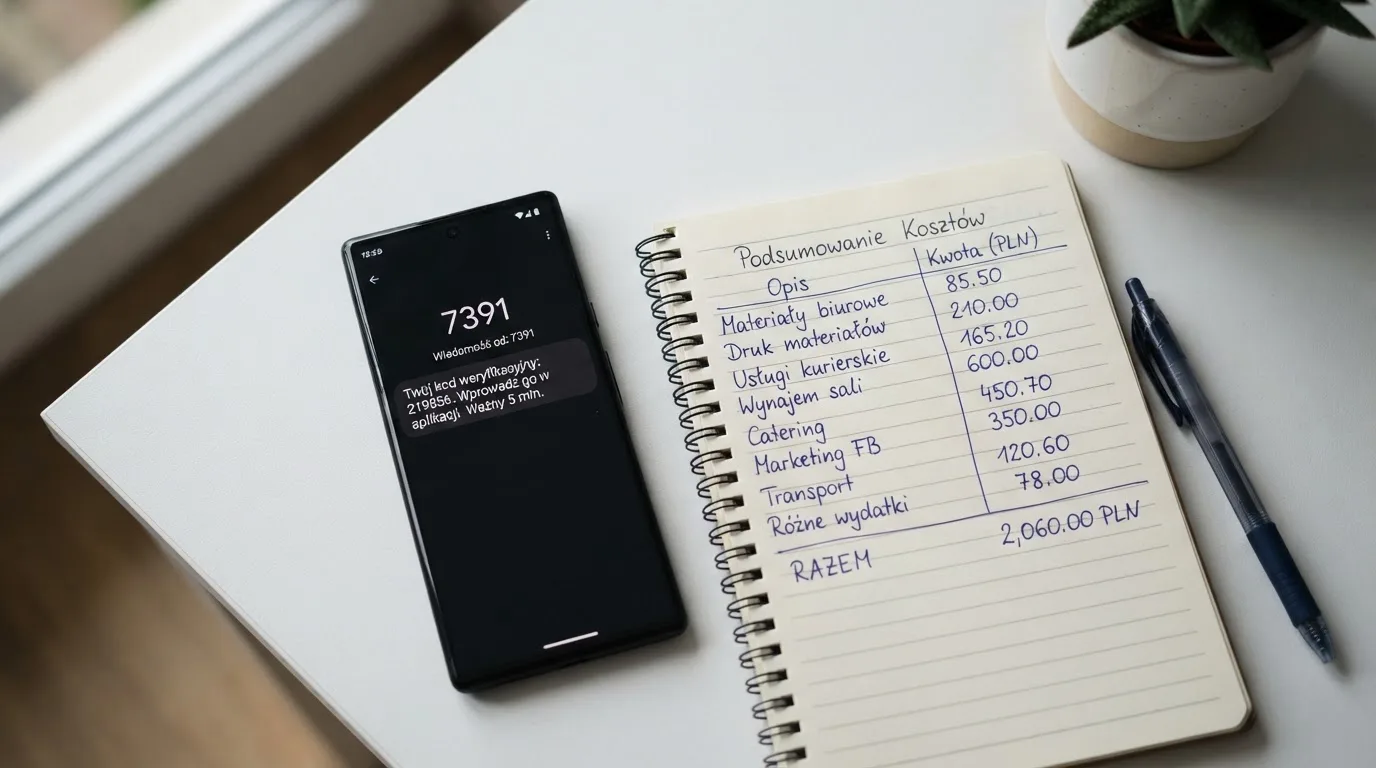 18:59
7391
Wiadomość od: 7391
Twój kod weryfikacyjny:
219856. Wprowadź go w
aplikacji. Ważny 5 min.
Podsumowanie Kosztów
Opis Kwota (PLN)
Materiały biurowe 85.50
Druk materiałów 210.00
Usługi kurierskie 165.20
Wynajem sali 600.00
Catering 450.70
Marketing FB 350.00
Transport 120.60
Różne wydatki 78.00
RAZEM 2,060.00 PLN